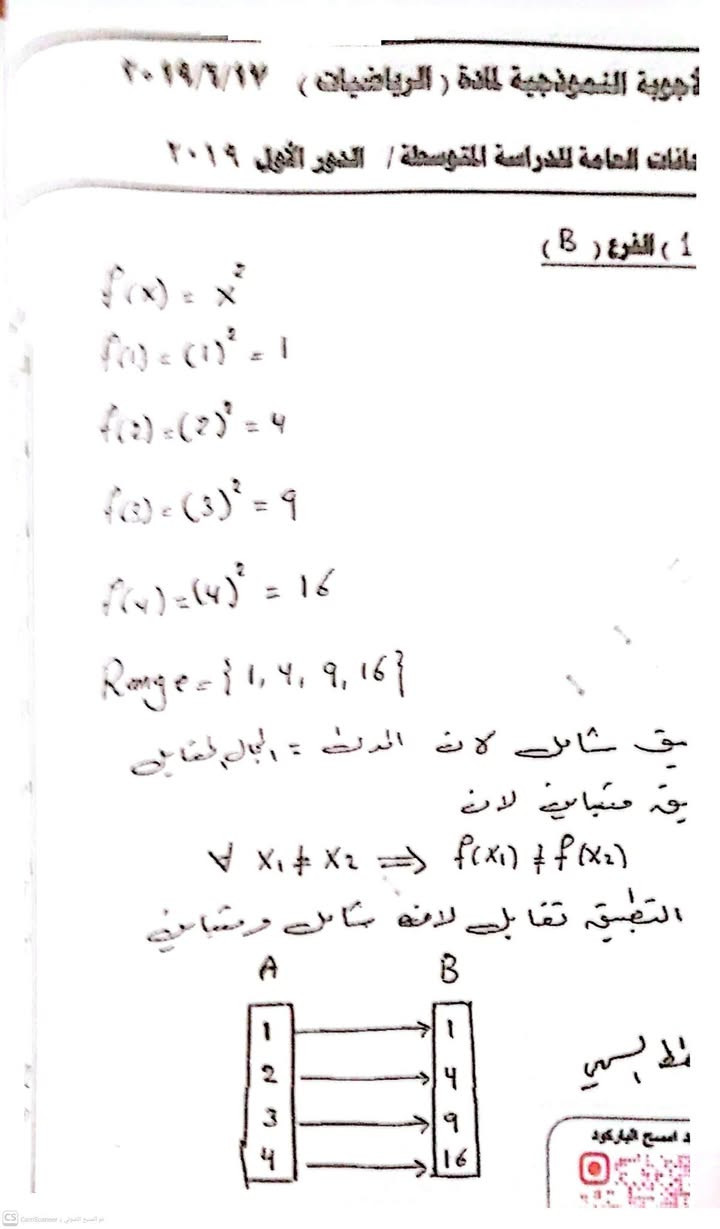 لأجوبة النموذجية لمادة ( الرياضيات ) ٢٠١٩/٦/١٧
العامة للدراسة المتوسطة / الدور الأول ٢٠١٩
1 ) الفرع ( B )
f(x) = x²
f(1) = (1)² = 1
f(2) = (2)² = 4
f(3) = (3)² = 9
f(4) = (4)² = 16
Range = { 1, 4, 9, 16 }
يق شامل لان المدى = المجال المقابل
يق متباين لان
∀ x₁ ≠ x₂ ⟹ f(x₁) ≠ f(x₂)
التطبيق تقابل لانه شامل ومتباين
A B
1 1
2 4
3 9
4 16
طط السهمي
امسح الباركود
CS CamScanner